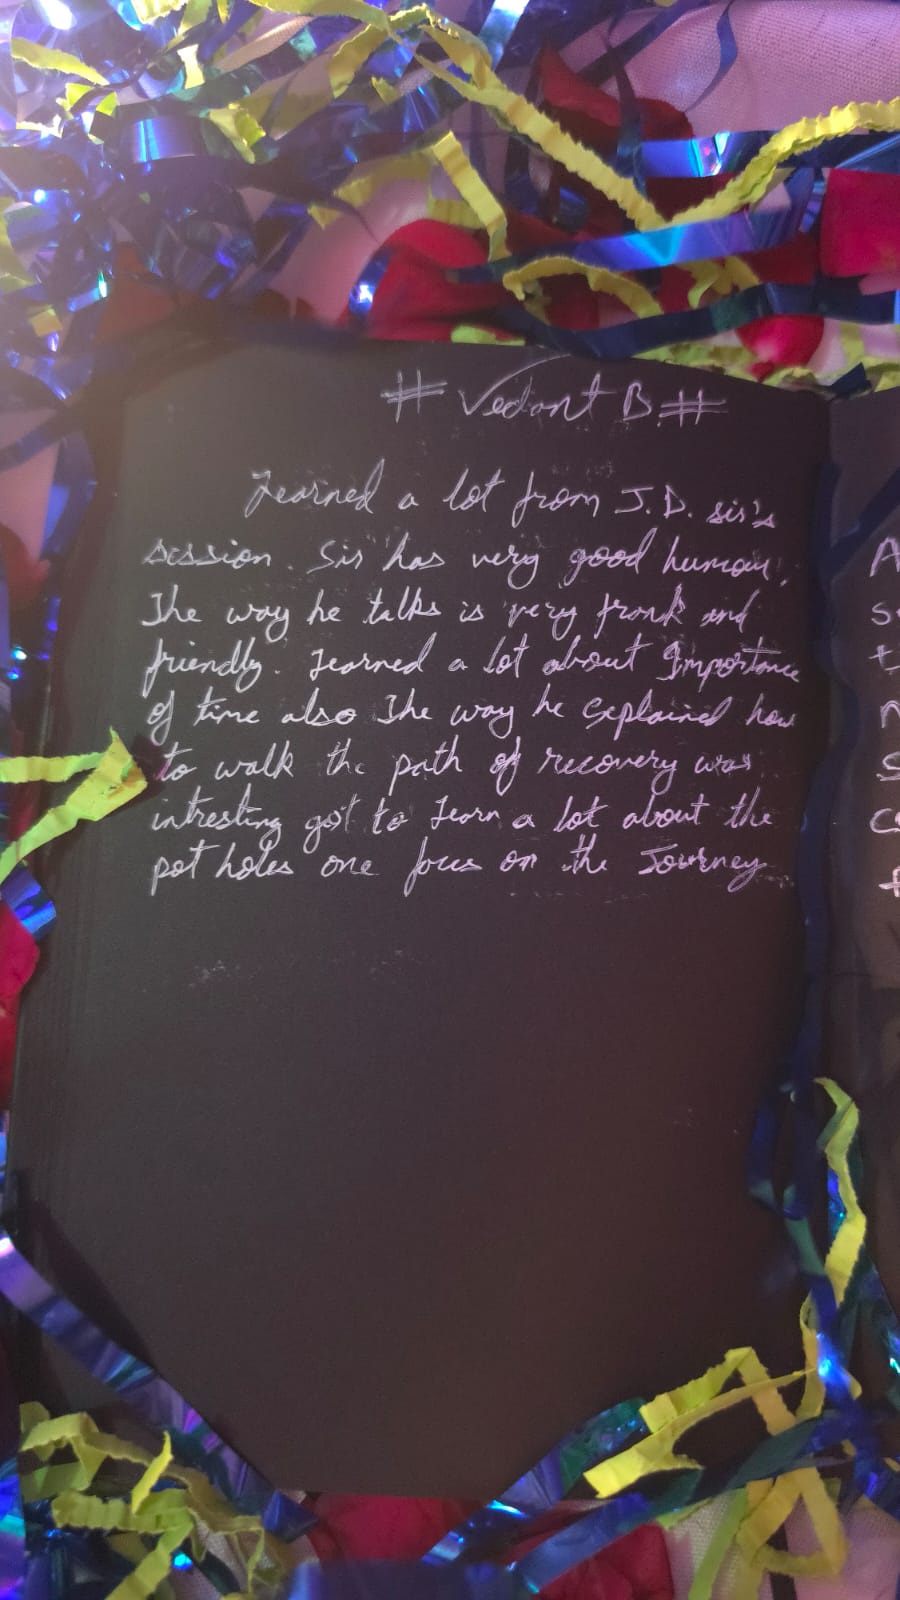 # Vedant B. #
Learned a lot from J.D. sir's
session. Sir has very good humour.
The way he talks is very frank and
friendly. Learned a lot about Importance
of time also The way he Explained how
to walk the path of recovery was
intresting got to Learn a lot about the
pot holes one focus on the Journey